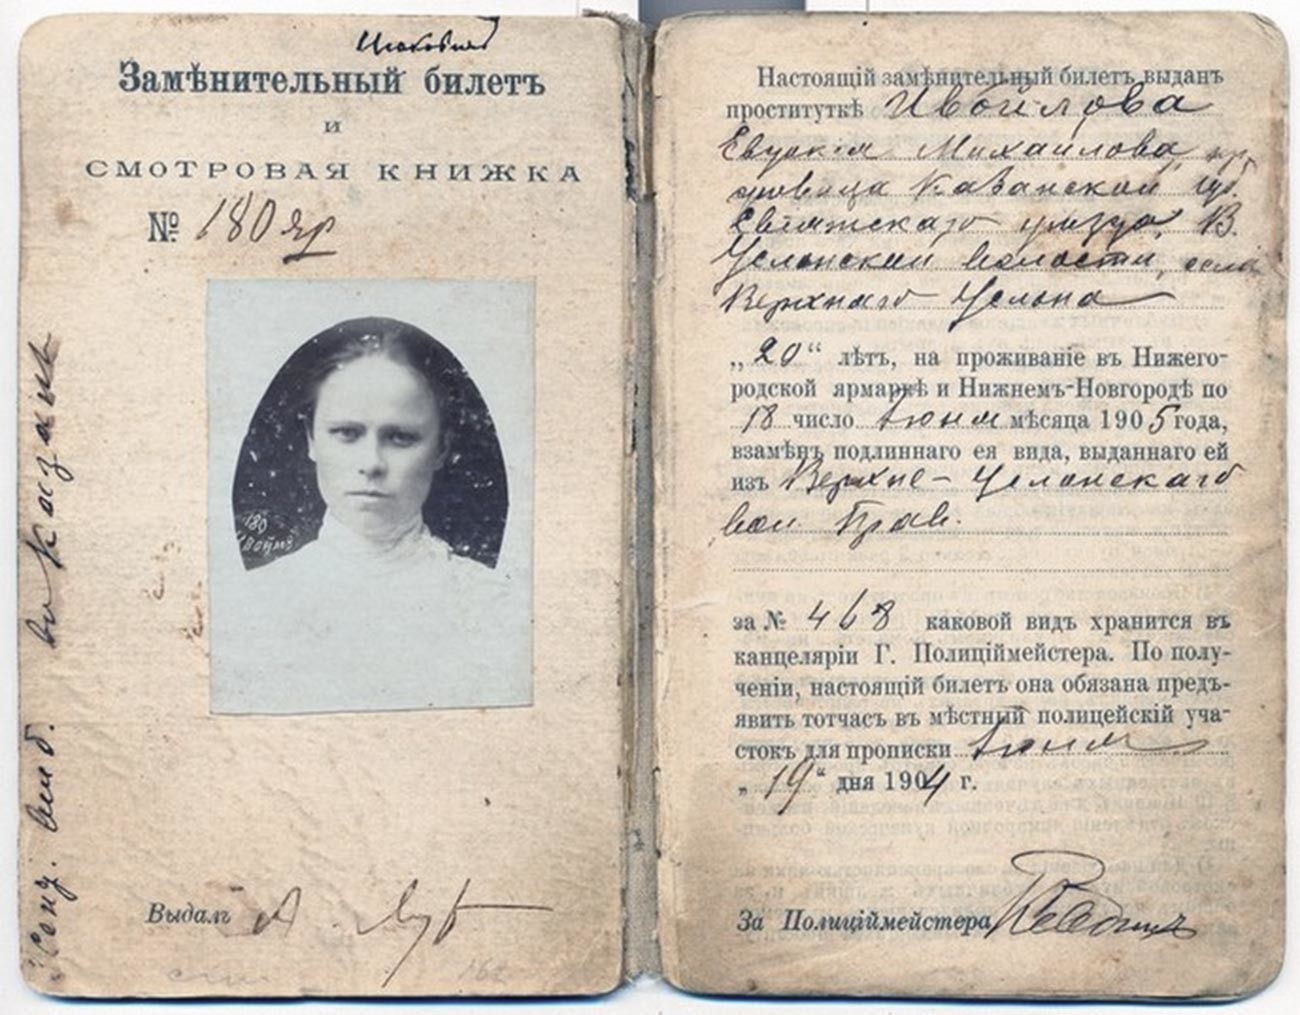 Замѣнительный билетъ
и
СМОТРОВАЯ КНИЖКА
№ 180 яр
180
Выдалъ А.
въ Казань
Настоящій замѣнительный билетъ выданъ
проституткѣ Ивойлова
Евдокія Михайлова, кр
Казанской губ.
Свіяжскаго уѣзда, В.
Услонской волости, села
Верхняго Услона
„20“ лѣтъ, на проживаніе въ Нижего-
родской ярмаркѣ и Нижнемъ-Новгородѣ по
18 число Іюня мѣсяца 1905 года,
взамѣнъ подлиннаго ея вида, выданнаго ей
изъ Верхне-Услонскаго
вол. Прав.
за № 468 каковой видъ хранится въ
канцеляріи Г. Полиціймейстера. По полу-
ченіи, настоящій билетъ она обязана предъ-
явить тотчасъ въ мѣстный полицейскій уча-
стокъ для прописки Іюня
„19“ дня 1904 г.
За Полиціймейстера